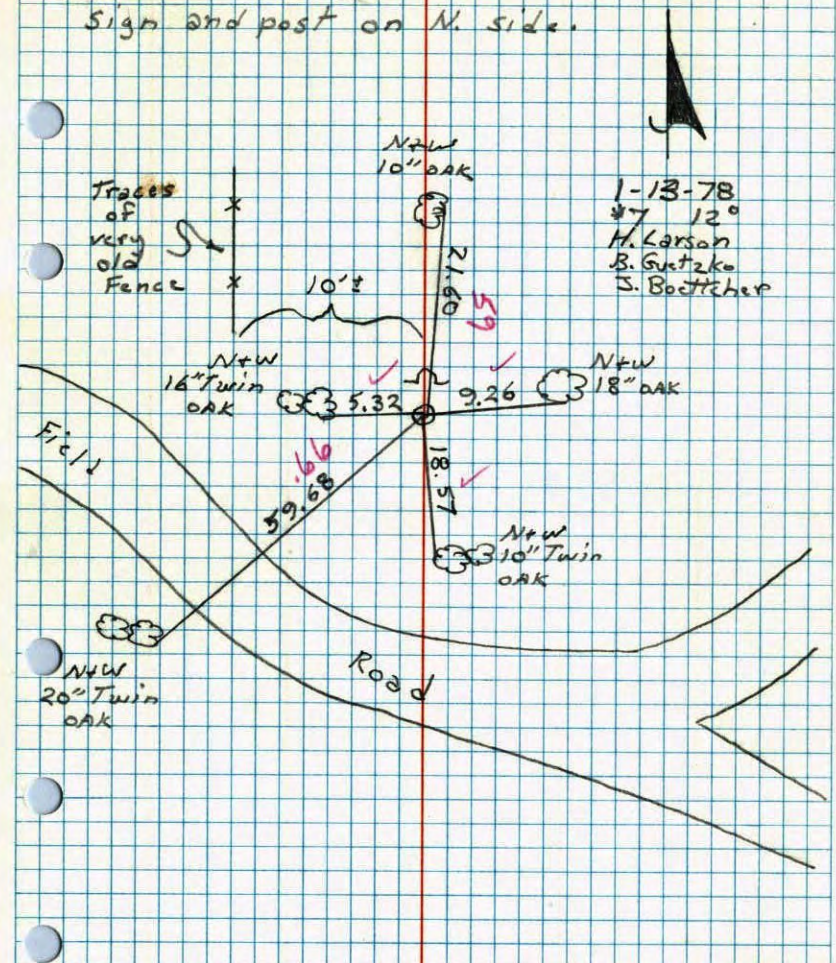 sign and post on N. side.
N+W
10" OAK
Traces
of
very
old
Fence
1-13-78
#7 12°
H. Larson
B. Guetzko
J. Boettcher
10'±
21.60
59
N+W
16" Twin
OAK
5.32
9.26
N+W
18" OAK
Field
.66
59.68
18.57
N+W
10" Twin
OAK
N+W
20" Twin
OAK
Road